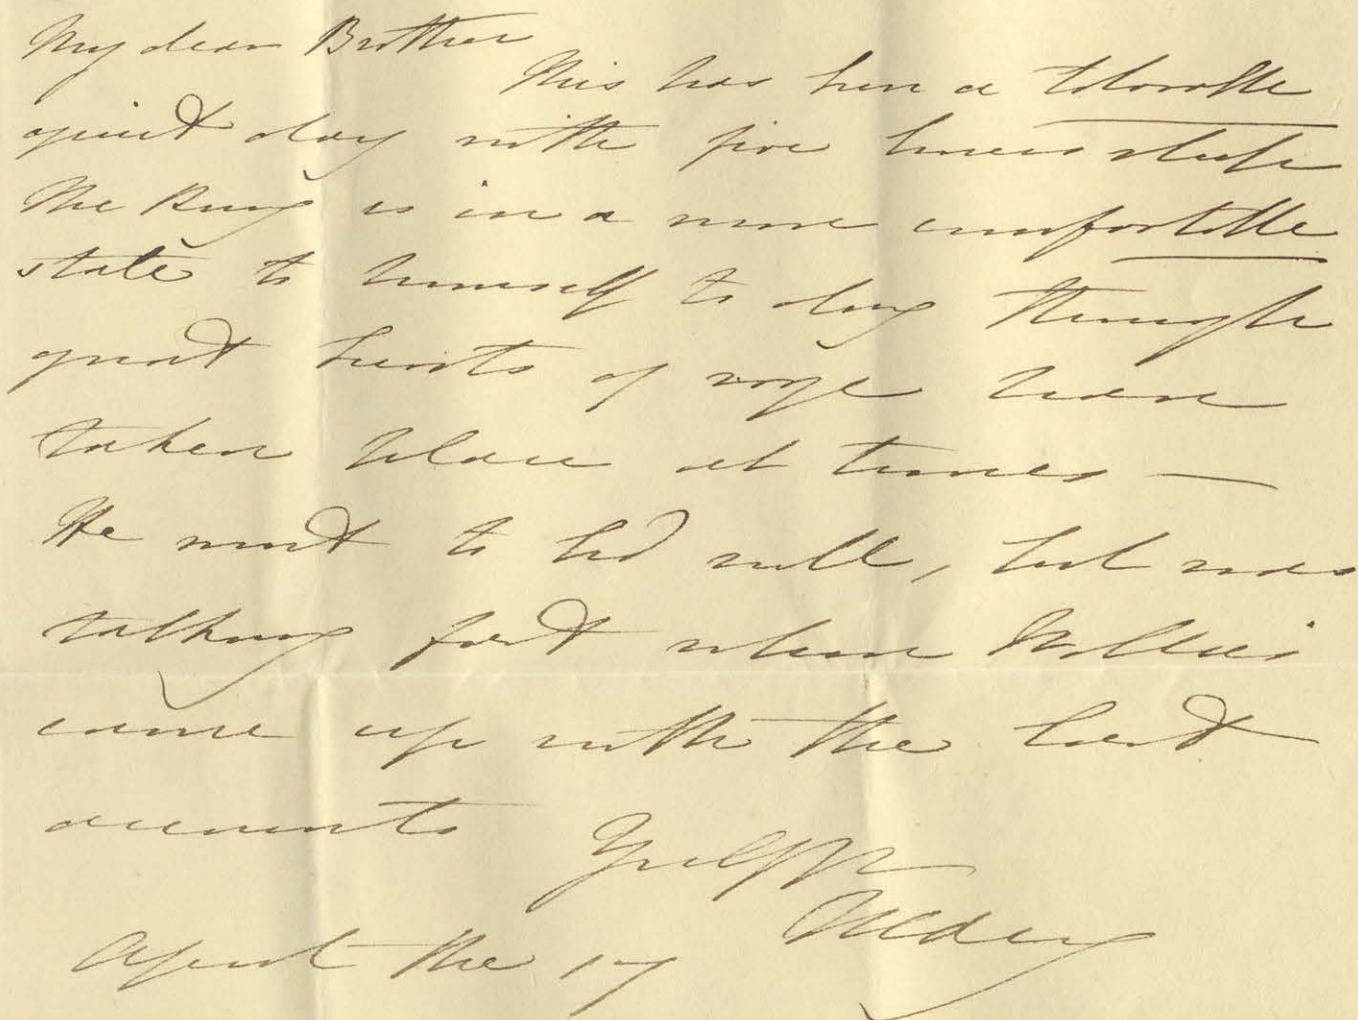 My dear Brother
This has been a tolerable
quiet day with five hours sleep
The King is in a more comfortable
state to himself to day though
great bursts of rage have
taken place at times —
He went to bed well, but was
talking fast when Willis
came up with the last
accounts
April the 17